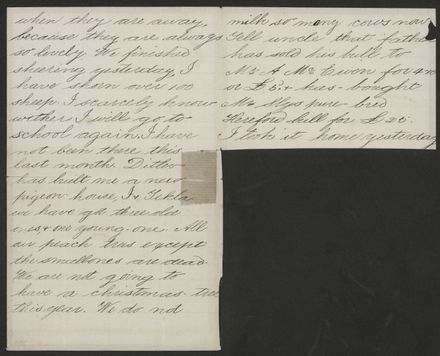 when they are away,
because they are always
so lovely. We finished
shearing yesterday, I
have shorn over 100
sheep. I scarcely know
wether I will go to
school again. I have
not been there this
last month. Ditlev
has built me a new
pigeon house, I & Tekla
we have got three old
ones, & one young one. All
our peach trees except
the smallbones are dead.
We are not going to
have a christmas tree
this year. We do not
milk so many cows now
Tell uncle that father
has sold his bull to
Mr A Mc Ewon for
or £5 & has bought
Mr pure bred
Hereford bull for £20.
I took it home yesterday